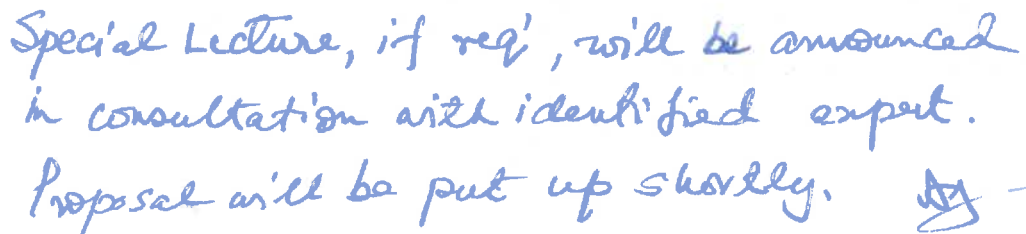 Special Lecture, if req', will be announced
in consultation with identified expert.
Proposal will be put up shortly.